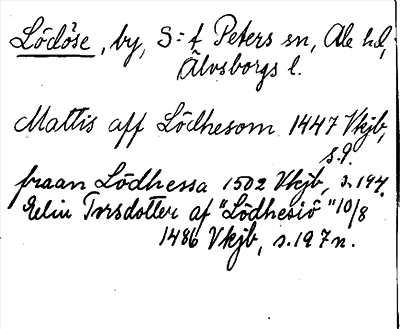 Lödöse, by, S:t Peters sn, Ale hd,
Älvsborgs l.
Mattis aff Lödhesom 1447 Vkjb,
s. 9.
fraan Lödhessa 1502 Vkjb, s. 194.
Elin Torsdotter af "Lödhesiö" 10/8
1486 Vkjb, s. 197 n.